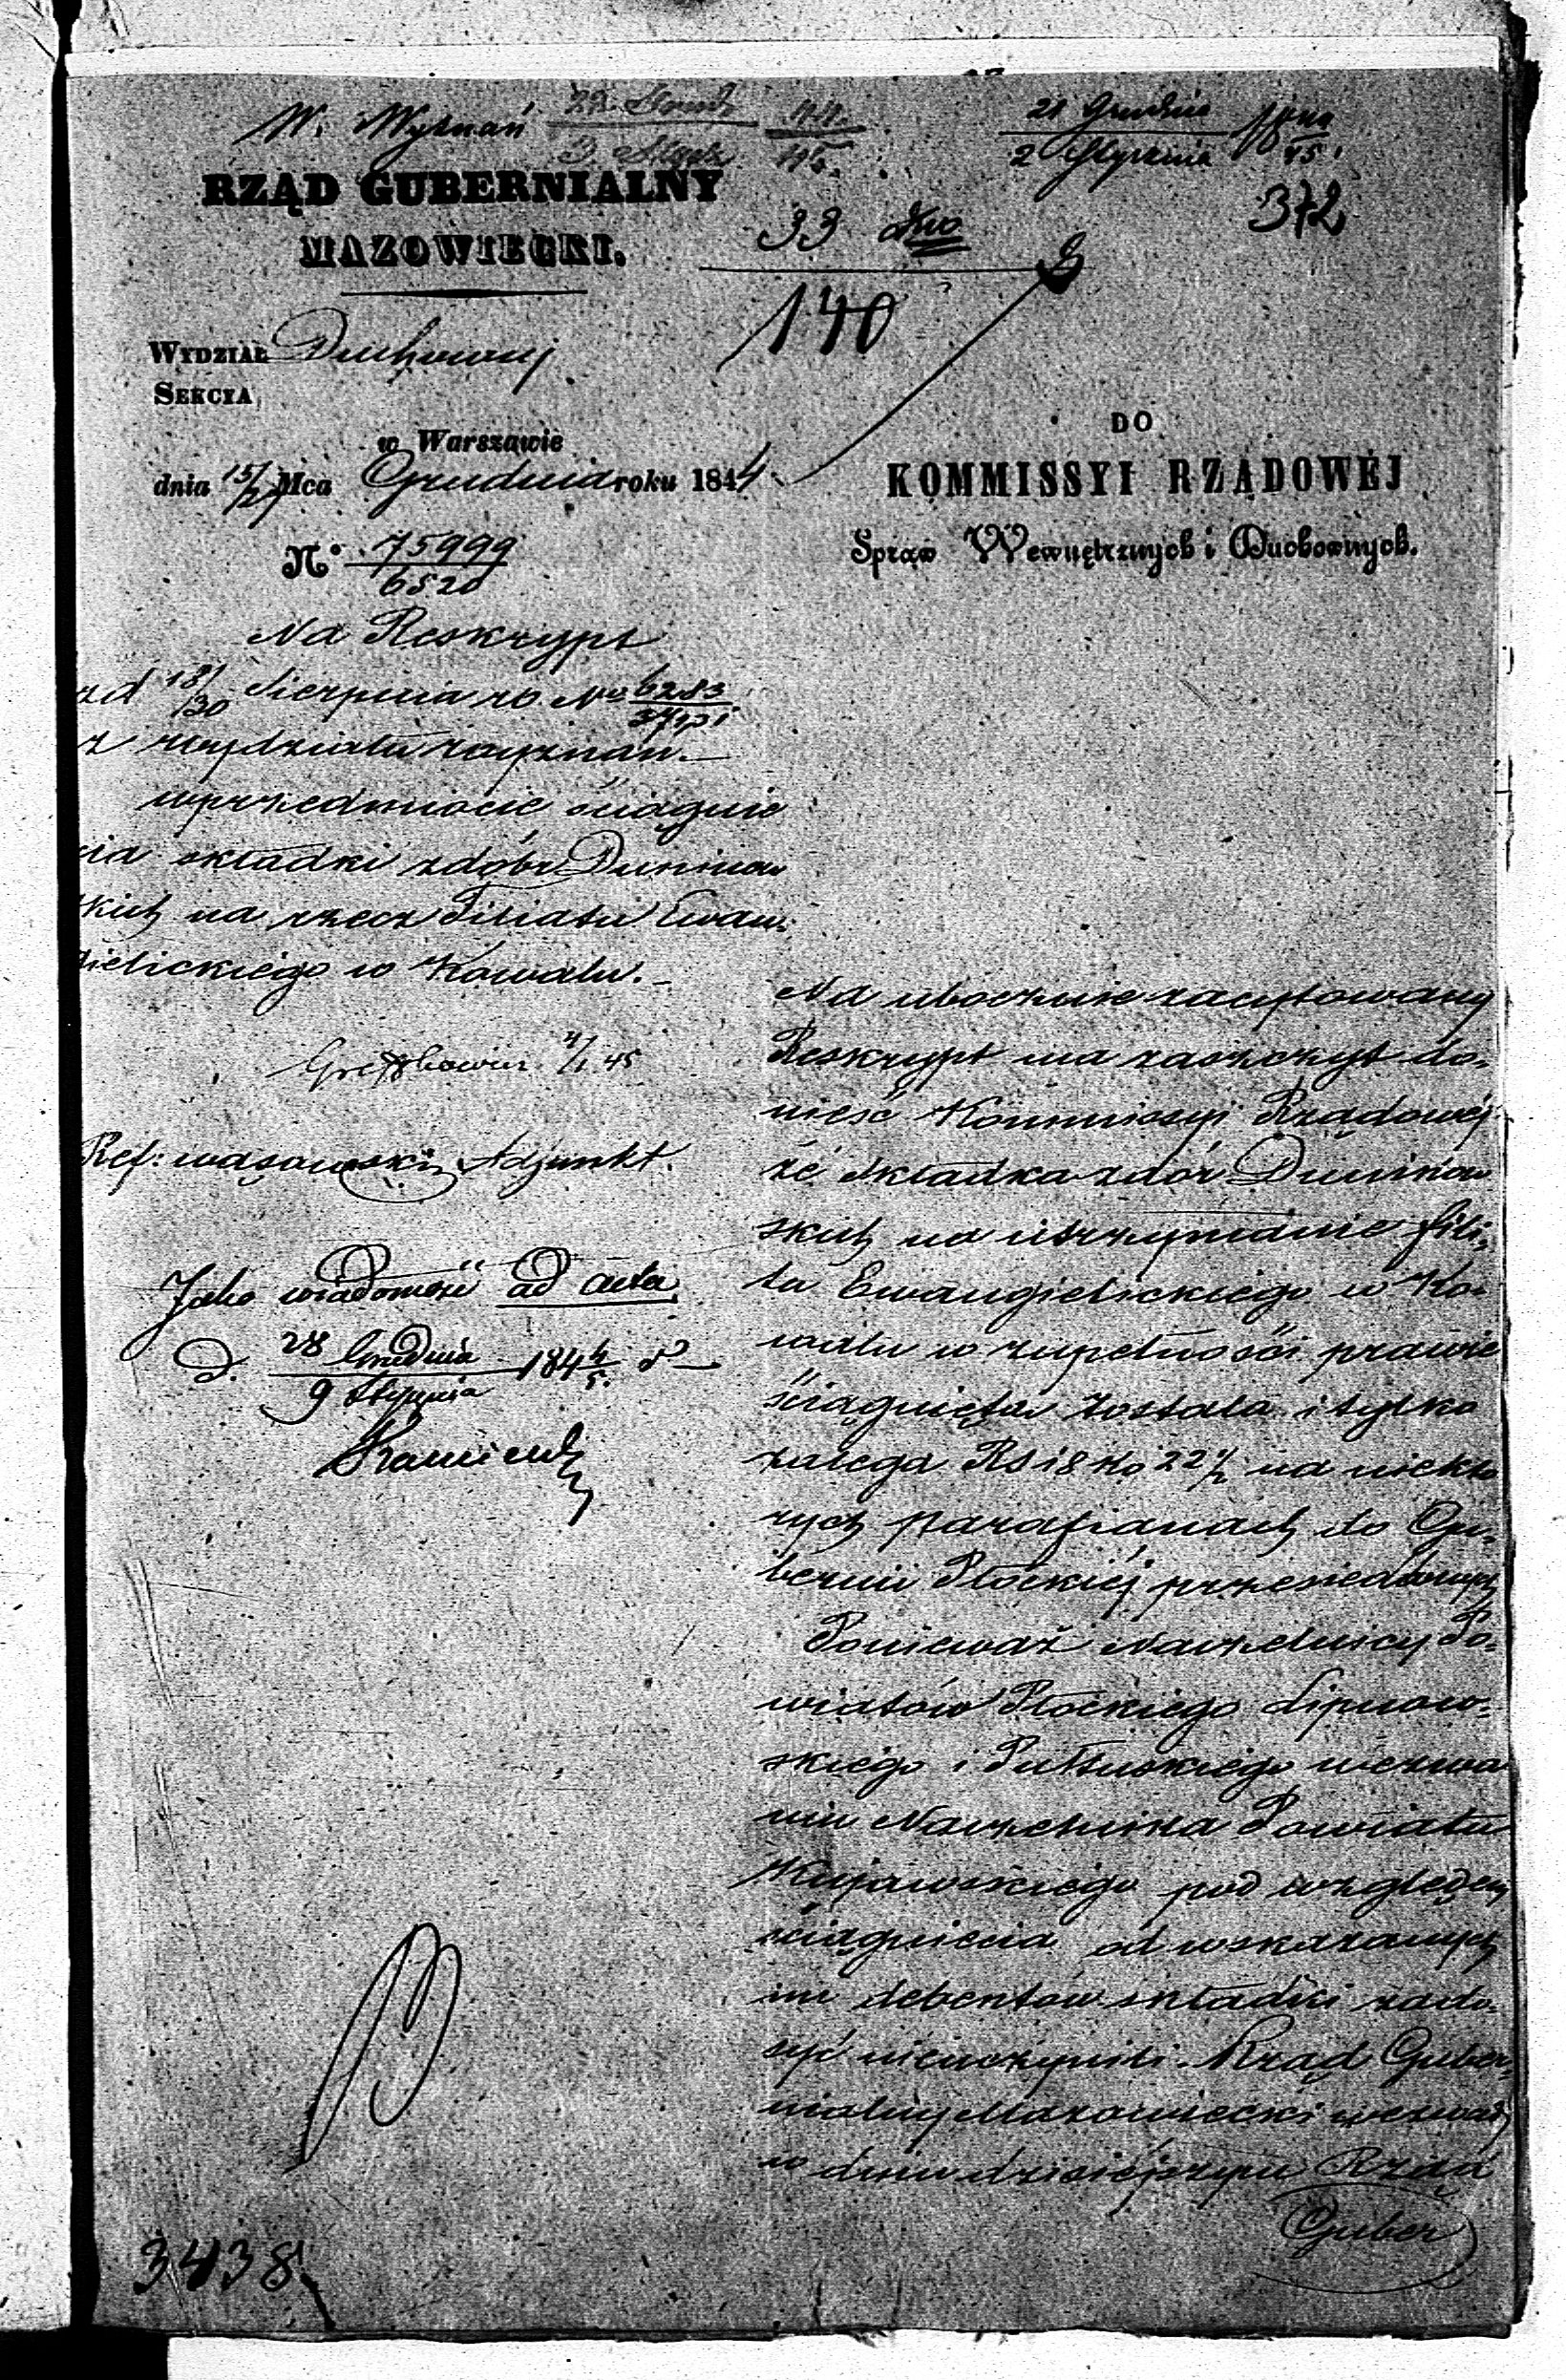 W. Wyznań
21 Grudnia 1844
2 Stycznia 45
372
RZĄD GUBERNIALNY
MAZOWIECKI.
33
140
WYDZIAŁ Duchowny
SEKCYA
w Warszawie
dnia 15/27 Mca Grudnia roku 1844
N° 75999
6520
Na Reskrypt
od 18/30 Sierpnia rb. No 6283
z wydziału wyznań.
w przedmiocie ściągnie
cia składki z dóbr Duninow
skich na rzecz Filiału Ewan-
gielickiego w Kowalu.
4/1 45
Ref: Wąsowski Adjunkt.
Jako wiadomość ad acta
d. 28 Grudnia 1844
9 Stycznia 5.
DO
KOMMISSYI RZĄDOWÉJ
Spraw Wewnętrznych i Duchownych.
Na ubocznie zacytowany
Reskrypt ma zaszczyt do-
nieść Kommissyi Rządowéj
że składka z dóbr Duninow
skich na utrzymanie fili-
łu Ewangielickiego w Ko-
walu w zupełności prawie
ściągnięta została i tylko
zalega Rs 18 ko 22 1/2 na niektó
rych parafianach do Gu-
bernii Płockiéj przesiedlonych
Ponieważ Naczelnicy Po-
wiatów Płockiego Lipnow-
skiego i Pułtuskiego wezwa
niu Naczelnika Powiatu
Kujawskiego pod względem
ściągnięcia od wskazanych
im debentów składki zado-
syć nieuczynili. Rząd Guber-
nialny Mazowiecki wezwał
w dniu dzisiéjszym Rząd
Guber
3438